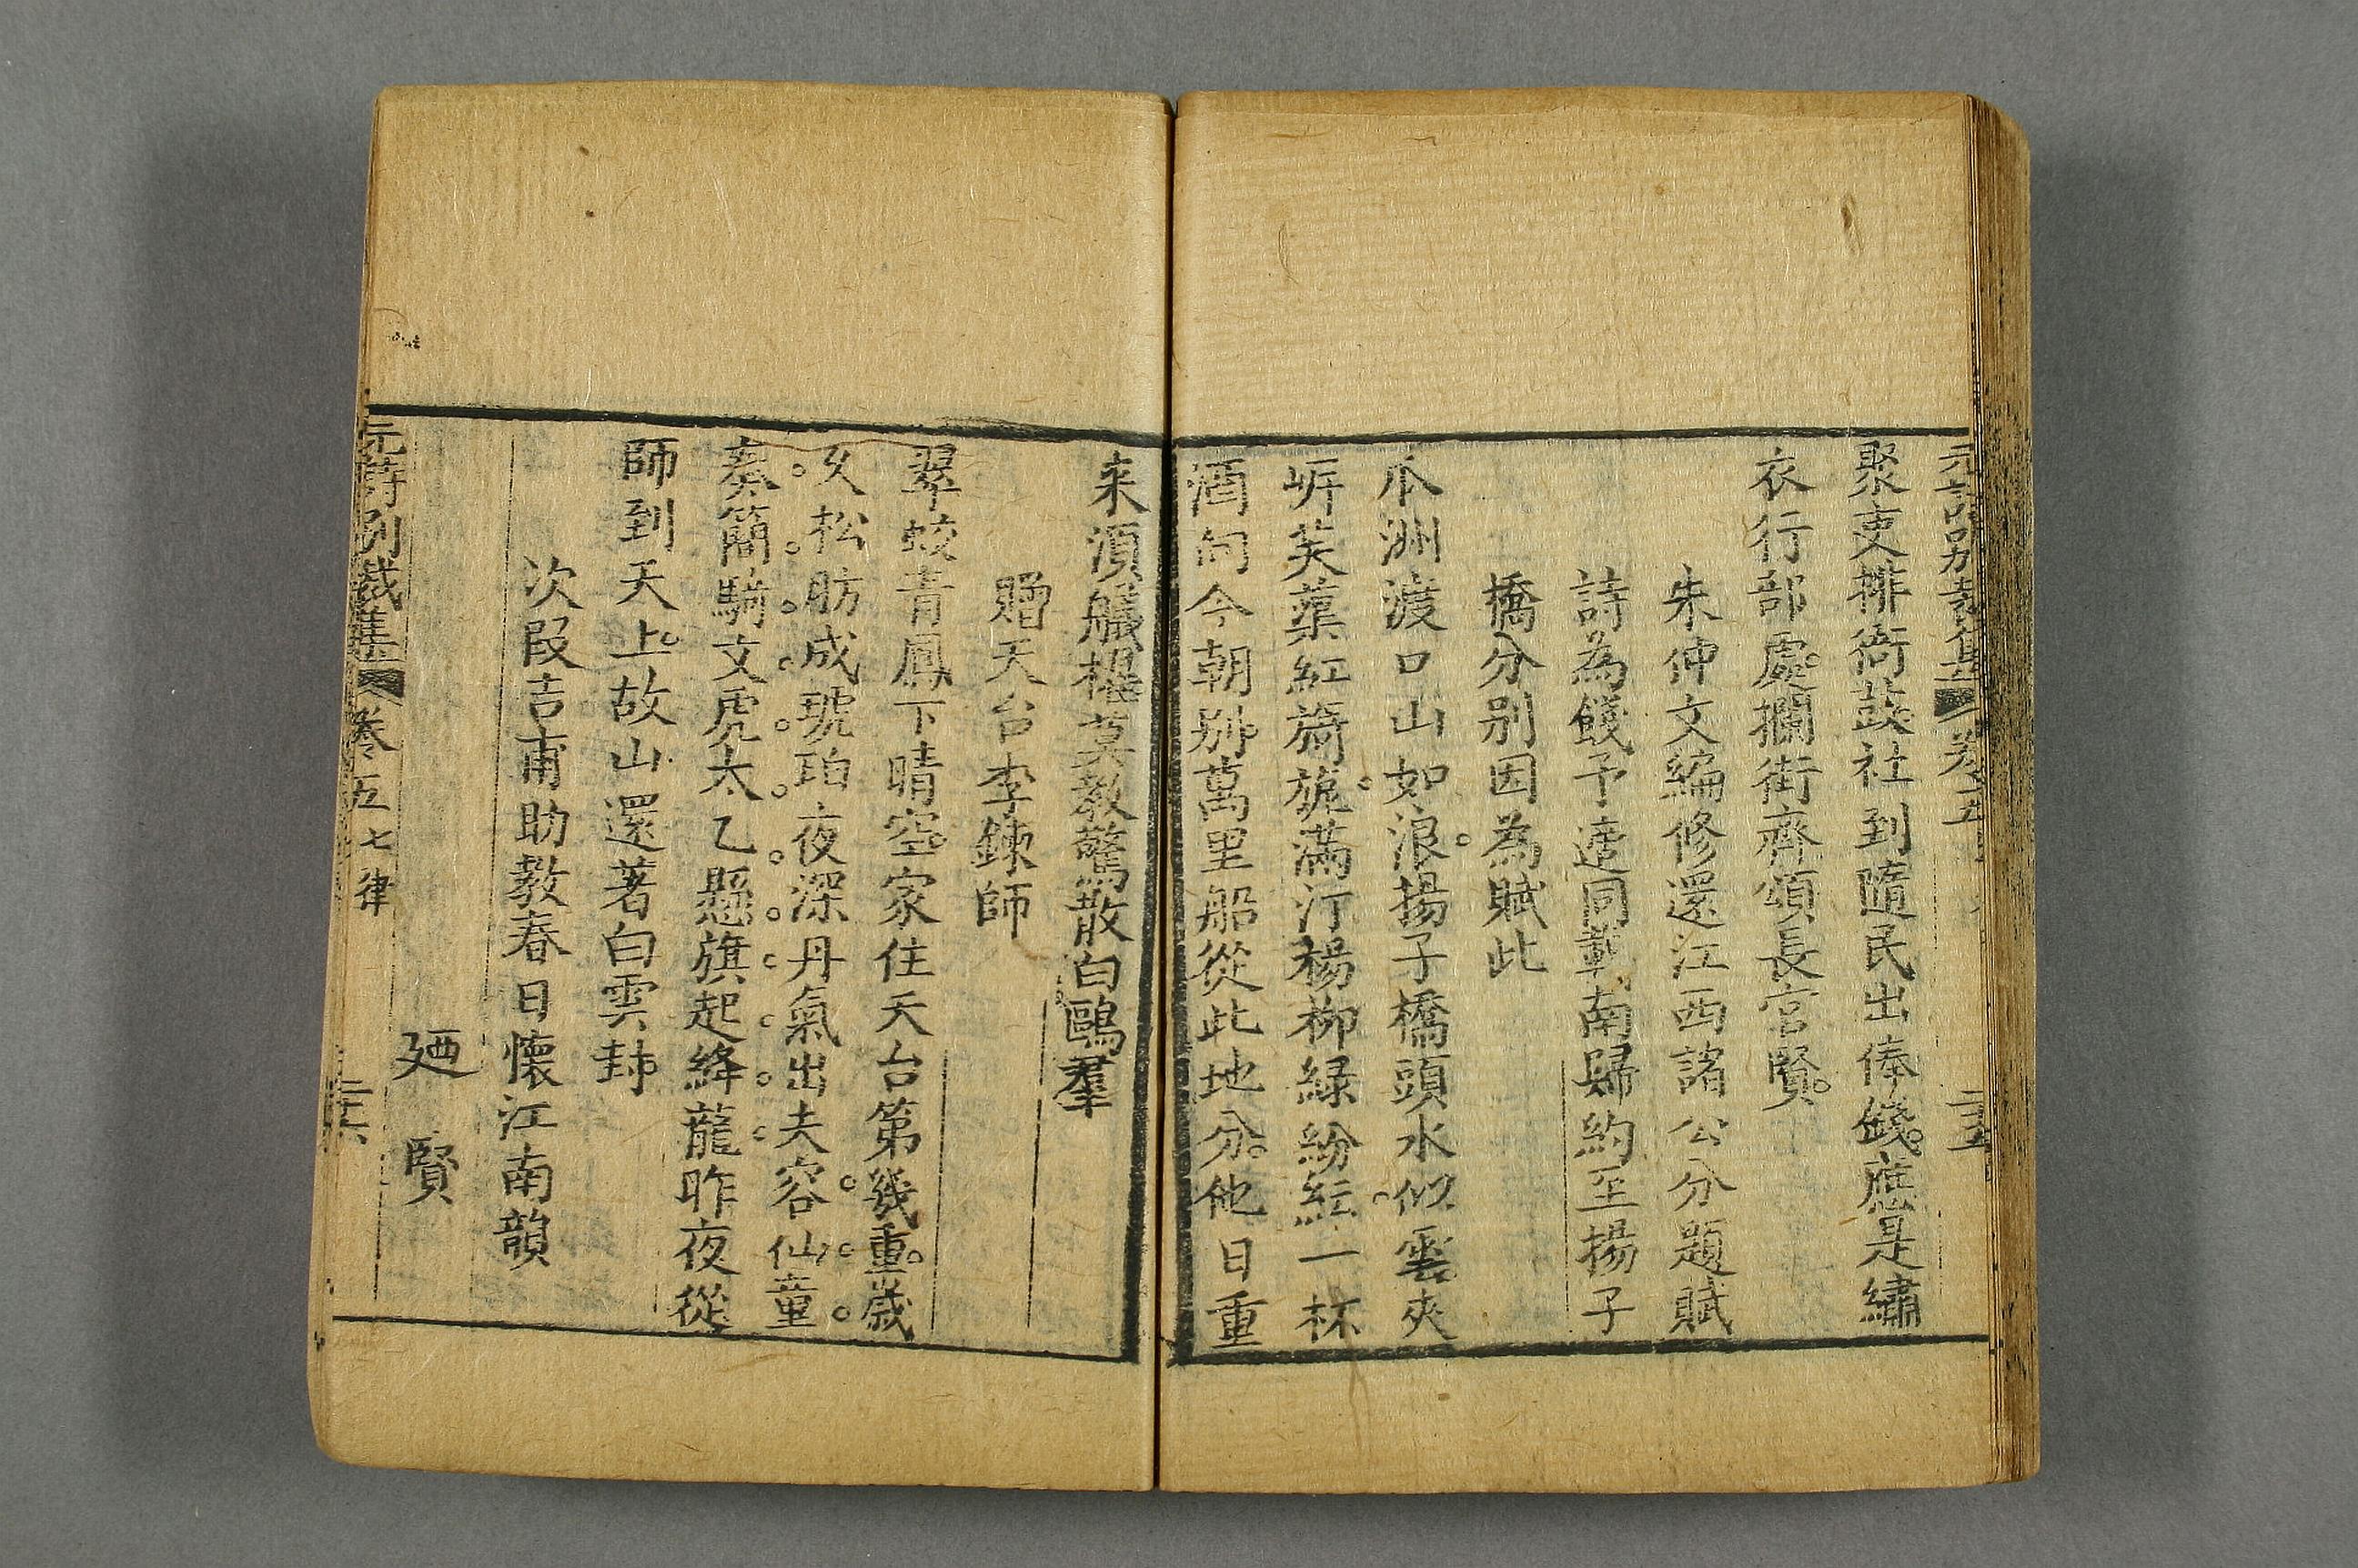 元詩別裁集 卷五 二十五
聚吏排衙鼓社到隨民出俸錢。應是繡
衣行部處。攔街齊頌長官賢。
朱仲文編修還江西諸公分題賦
詩為餞予適同載南歸約至揚子
橋分别因為賦此
瓜洲渡口山如浪。揚子橋頭水似雲夾
岍芙蕖紅旖旎。滿汀楊柳緑紛紜。一杯
酒向今朝别。萬里船從此地分。他日重
来須艤櫂莫教驚散白鷗羣
贈天台李鍊師
翠蛟青鳳下晴空。家住天台第幾重。歲
久松肪成琥珀夜深丹氣出夫容仙童
奏簡騎文虎太乙懸旗起絳龍昨夜從
師到天上。故山還著白雲封
次段吉甫助教春日懷江南韻
廼賢
元詩别裁集 卷五 七律 二十六